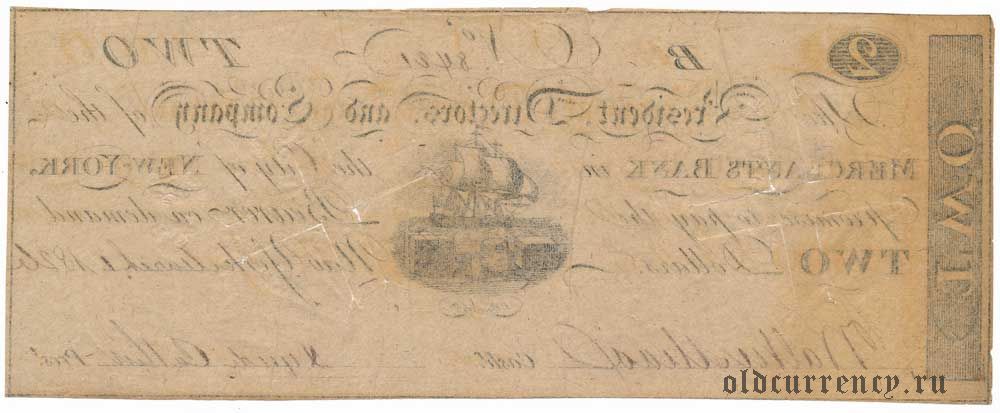 2 B No. 8421 TWO
The President, Directors, and Company of the
MERCHANTS BANK in the City of NEW-YORK,
promise to pay the Bearer on demand
TWO Dollars. New York March 1 1826
Cash. Lynde Catlin Prest.
TWO
oldcurrency.ru